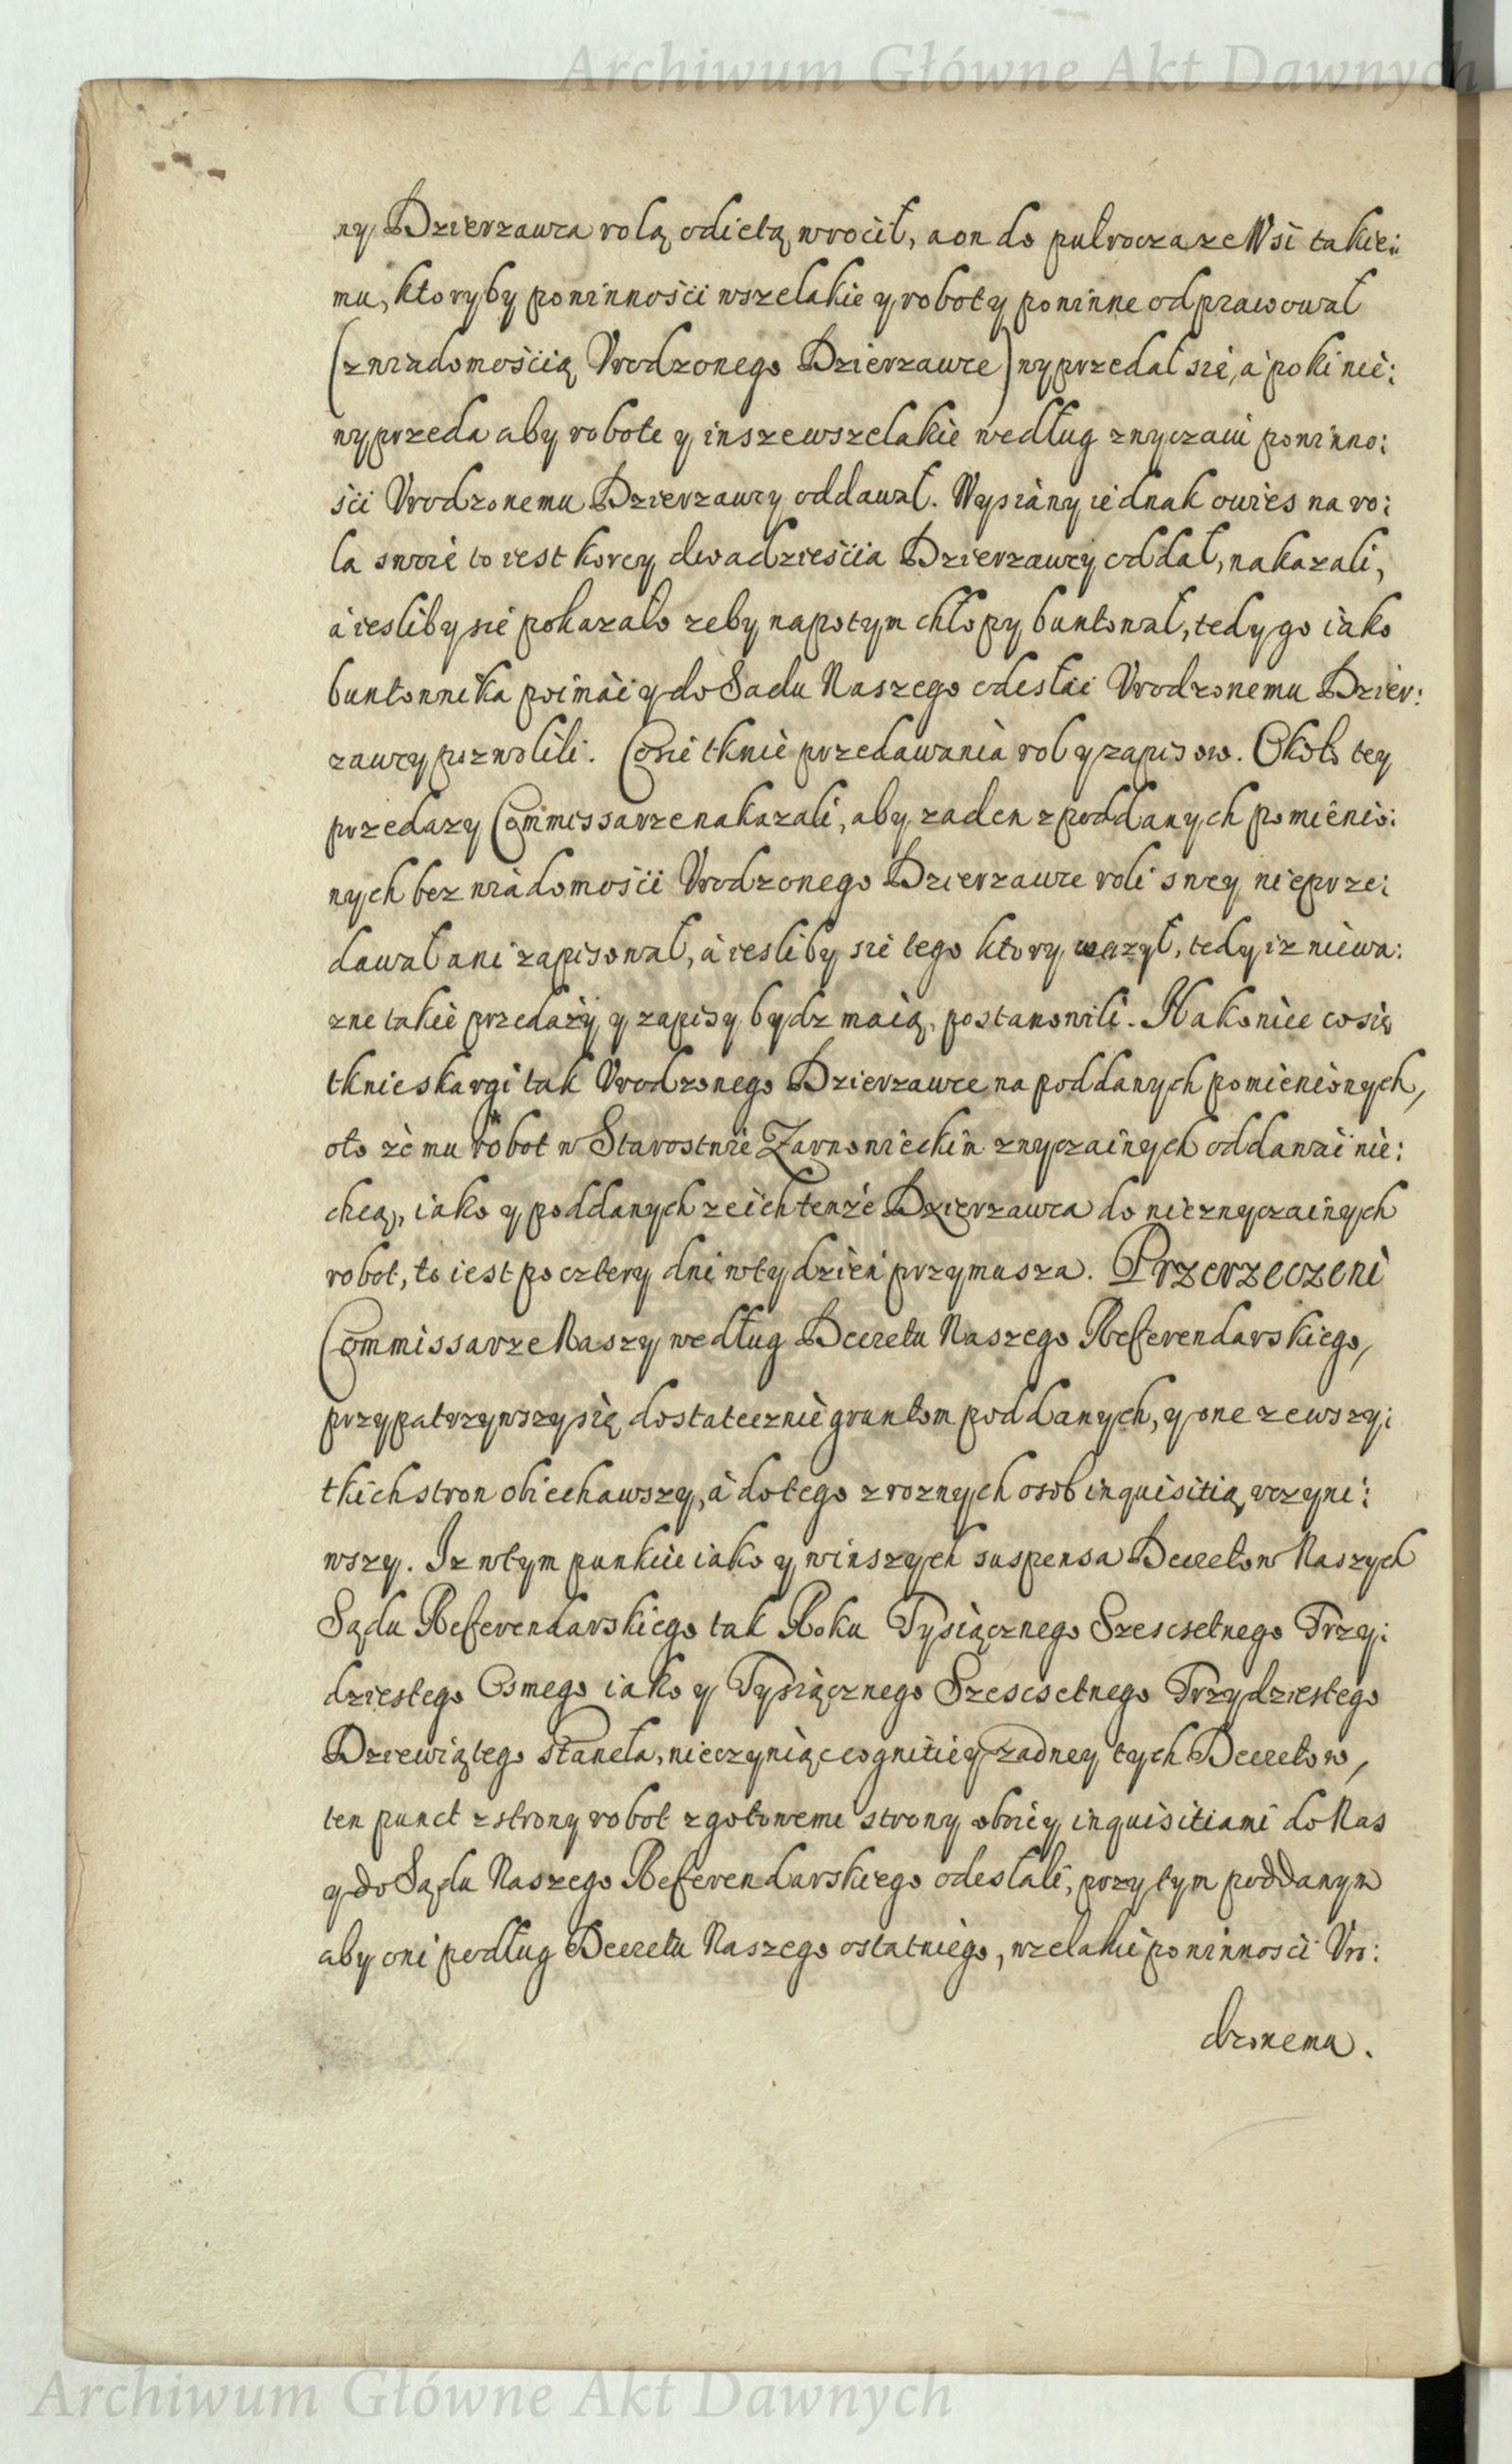 Archiwum Główne Akt Dawnych
ny Dzierzawca rolą odietą wrocił, a on do pułrocza ze Wsi takie:
mu, ktoryby powinności wszelakie y roboty powinne odprawował
(z wiadomością Vrodzonego Dzierzawce) wyprzedał się, à poki nie:
wyprzeda aby robote y insze wszelakie według zwyczaiu powinno:
ści Vrodzonemu Dzierzawcy oddawał. Wysiany iednak owies na ro:
la swoie to iest korcy dwadzieścia Dzierzawcy oddał, nakazali,
à iesliby sie pokazało zeby napotym chłopy buntował, tedy go iako
buntownika poimać y do Sadu Naszego odesłać Vrodzonemu Dzier:
zawcy pozwolili. Co sie tknie przedawania rol y zapisow. Około tey
przedazy Commissarze nakazali, aby zaden z poddanych pomienio:
nych bez wiadomości Vrodzonego Dzierzawce roli swey nie prze:
dawał ani zapisował, à iesliby sie tego ktory wazył, tedy iz niewa:
zne takie przedaży y zapisy bydz maią, postanowili. Nakoniec co się
tknie skargi tak Vrodzonego Dzierzawce na poddanych pomienionych,
oto że mu robot w Starostwie Zarnowieckim zwyczainych oddawać nie:
chcą, iako y poddanych ze ich tenże Dzierzawca do niezwyczainych
robot, to iest po cztery dni w tydzień przymusza. Przerzeczeni
Commissarze Naszy według Decretu Naszego Referendarskiego,
przypatrzywszy się dostatecznie gruntom poddanych, y one ze wszy:
tkich stron obiechawszy, à do tego z roznych osob inquisitią vczyni:
wszy. Iz w tym punkcie iako y w inszych suspensa Decretow Naszych
Sądu Referendarskiego tak Roku Tysiącznego Szescsetnego Trzy:
dziestego Osmego iako y Tysiącznego Szescsetnego Trzydziestego
Dziewiątego stanęła, nieczyniąc cognitiey żadney tych Decretow,
ten punct z strony robot z gotowemi strony oboiey inquisitiami do Nas
y do Sądu Naszego Referendarskiego odesłali, przy tym poddanym
aby oni podług Decretu Naszego ostatniego, wzelakie powinnosci Vro:
dzonemu.
Archiwum Główne Akt Dawnych